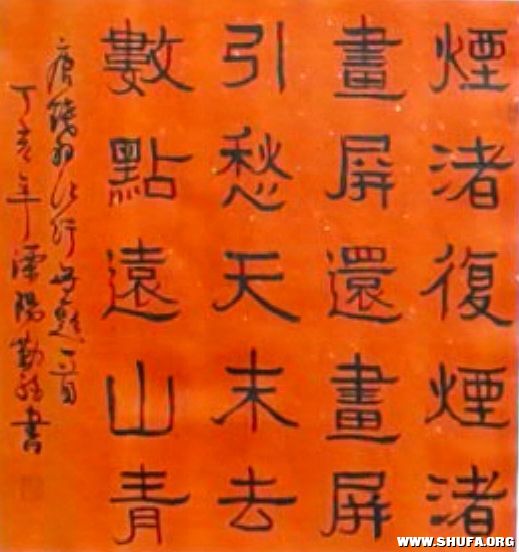 煙渚復煙渚
畫屏還畫屏
引愁天末去
數點遠山青
唐錢珝江行無題一首
丁亥年溧陽書
WWW.SHUFA.ORG